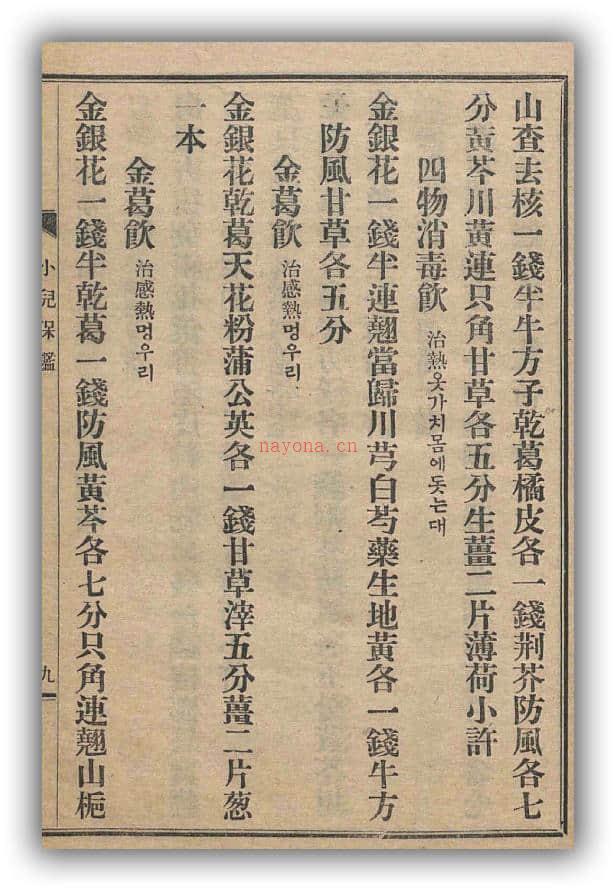 山査去核一錢半牛方子乾葛橘皮各一錢荆芥防風各七
分黃芩川黃連只角甘草各五分生薑二片薄荷小許
四物消毒飮 治熱옷가치몸에돗는대
金銀花一錢半連翹當歸川芎白芍藥生地黃各一錢牛方
子防風甘草各五分
金葛飮 治感熱멍우리
金銀花乾葛天花粉蒲公英各一錢甘草滓五分薑二片葱
一本
金葛飮 治感熱멍우리
金銀花一錢半乾葛一錢防風黃芩各七分只角連翹山梔
小兒保鑑
九
nayona.cn